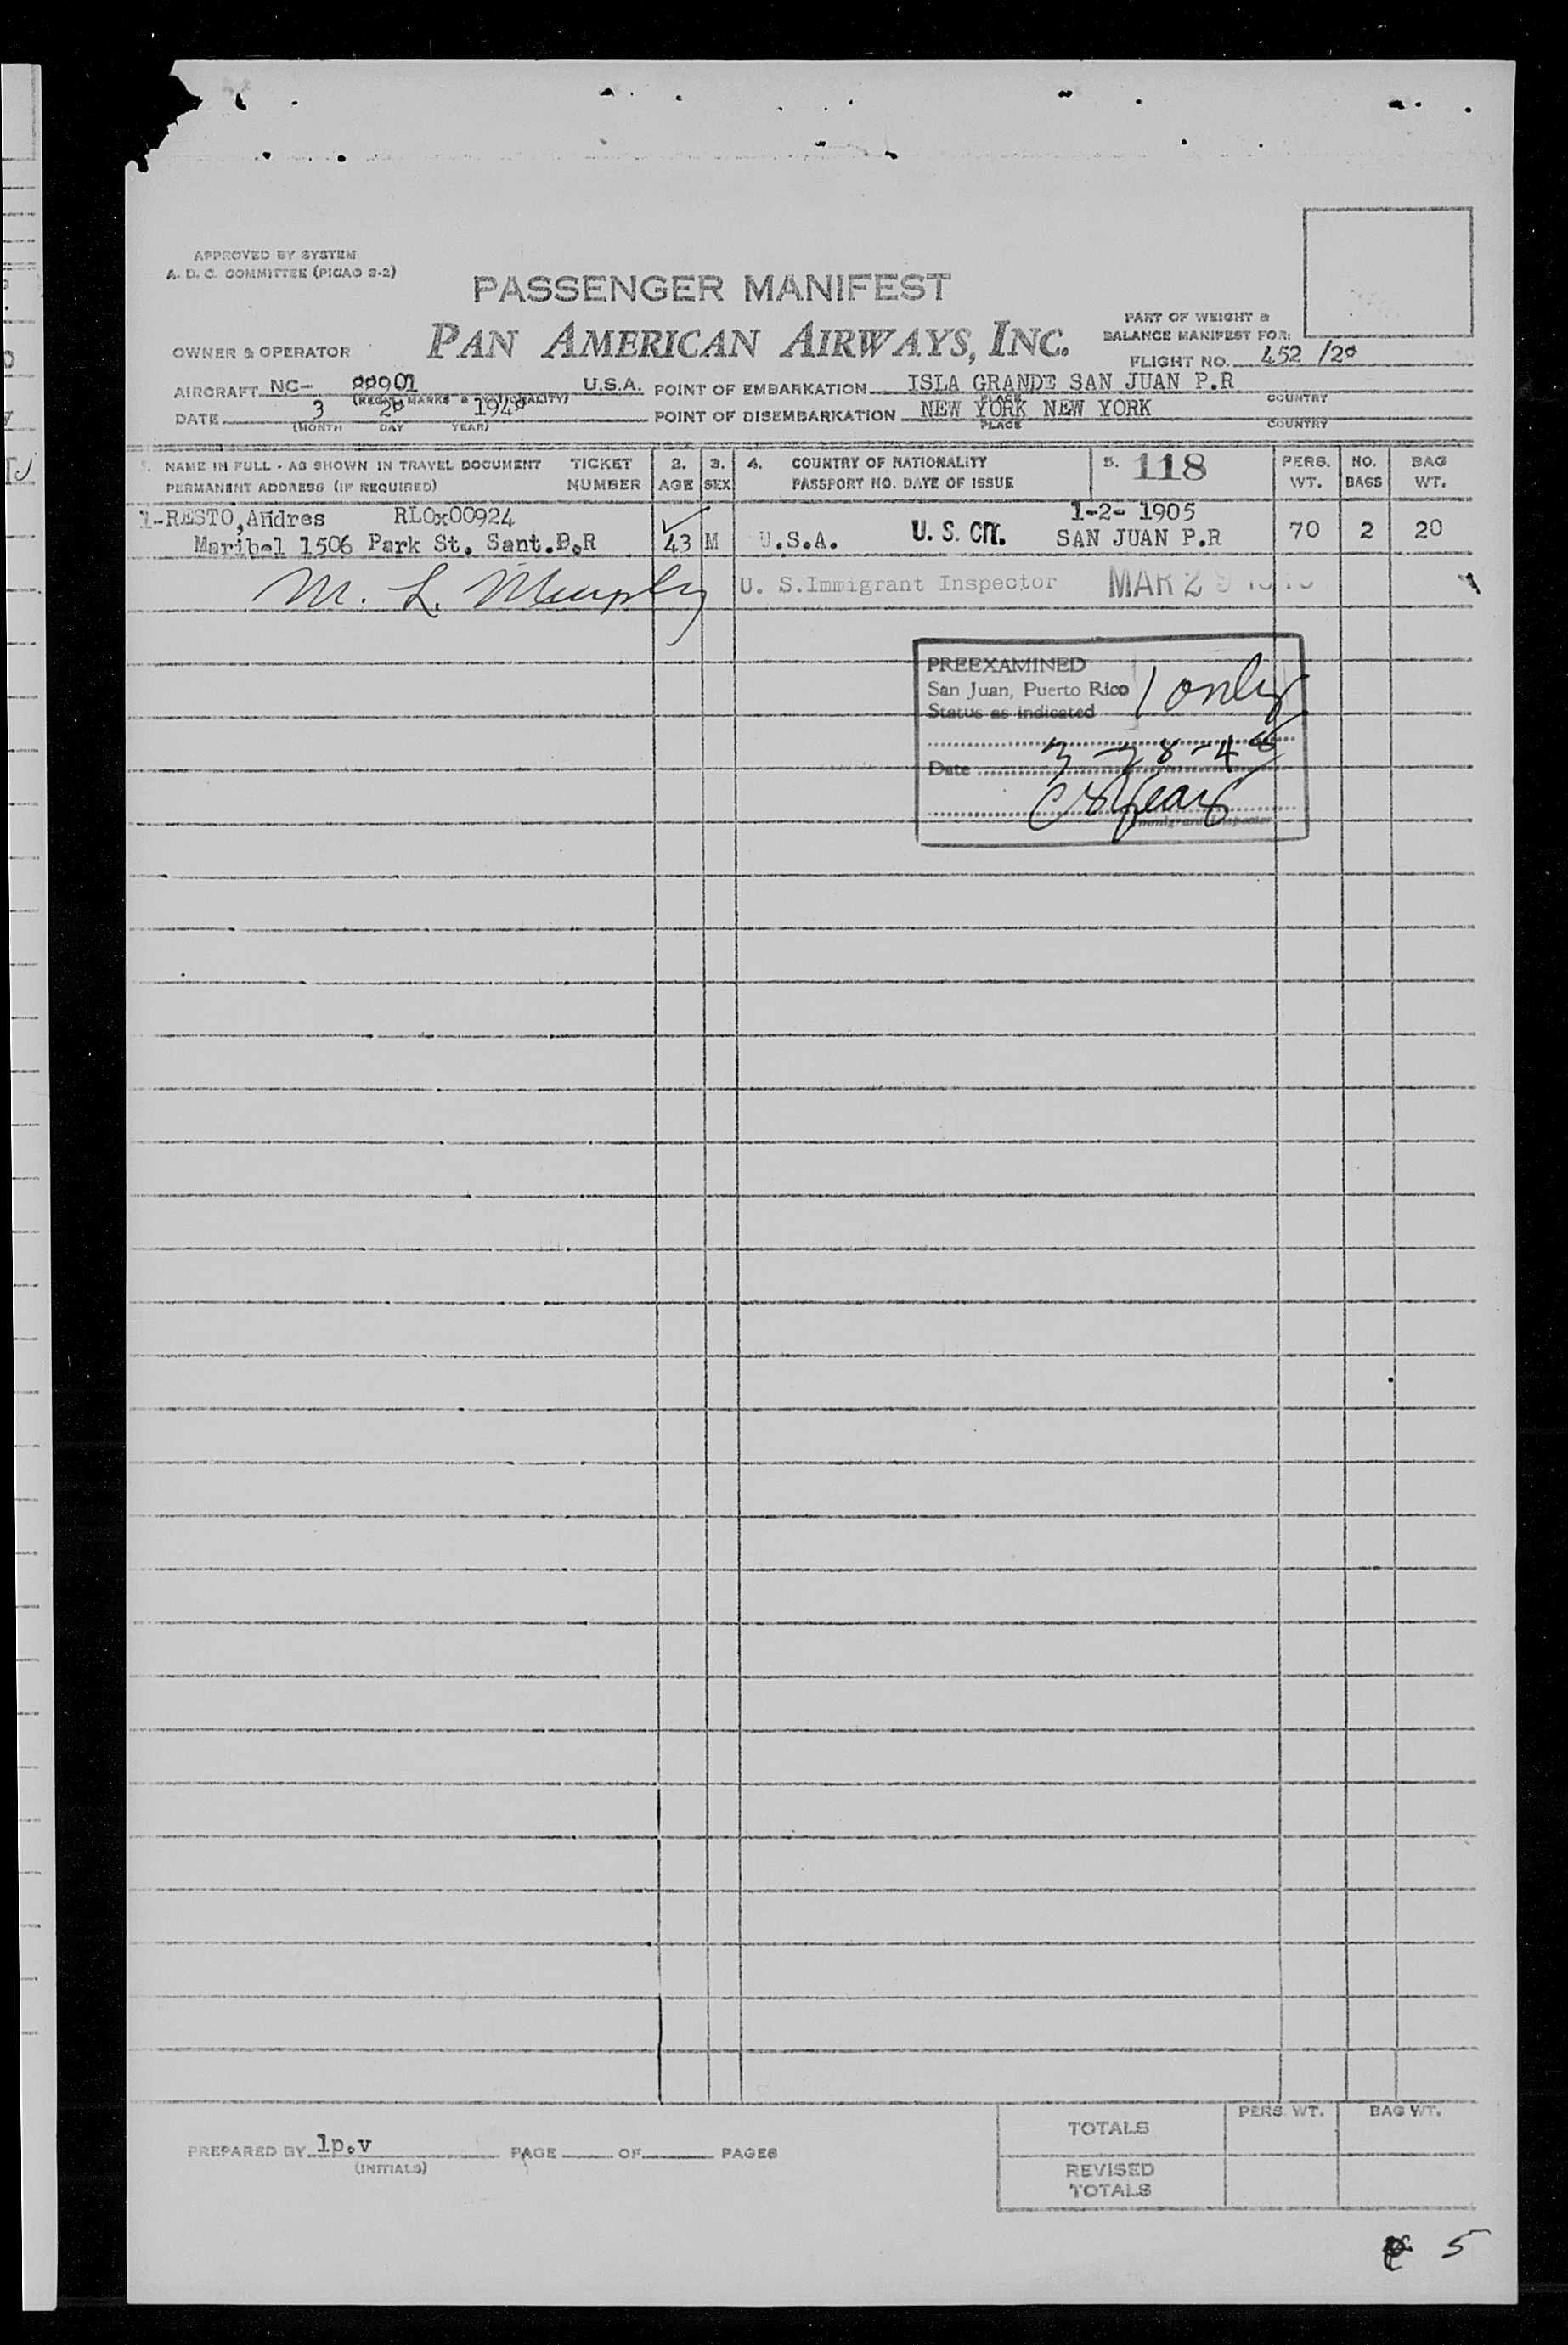 APPROVED BY SYSTEM
A. D. C. COMMITTEE (PICAO S-2)
PASSENGER MANIFEST
PAN AMERICAN AIRWAYS, INC.
PART OF WEIGHT &
BALANCE MANIFEST FOR:
OWNER & OPERATOR
FLIGHT NO. 452 /28
AIRCRAFT NC- 88901 U.S.A. POINT OF EMBARKATION ISLA GRANDE SAN JUAN P.R
(REGIS. MARKS & NATIONALITY) PLACE COUNTRY
DATE 3 28 1948 POINT OF DISEMBARKATION NEW YORK NEW YORK
(MONTH DAY YEAR) PLACE COUNTRY
1. NAME IN FULL - AS SHOWN IN TRAVEL DOCUMENT TICKET 2. 3. 4. COUNTRY OF NATIONALITY 5. 118 PERS. NO. BAG
PERMANENT ADDRESS (IF REQUIRED) NUMBER AGE SEX PASSPORT NO. DATE OF ISSUE WT. BAGS WT.
1-RESTO,Andres RLOx00924 1-2- 1905
Maribel 1506 Park St. Sant.P.R 43 M U.S.A. U. S. CIT. SAN JUAN P.R 70 2 20
M. L. Murphy U. S.Immigrant Inspector MAR 29
PREEXAMINED
San Juan, Puerto Rico 1 only
Status as indicated
Date 3-28-48
Immigrant Inspector
PREPARED BY lp.v PAGE OF PAGES
(INITIALS)
TOTALS PERS. WT. BAG WT.
REVISED
TOTALS
5